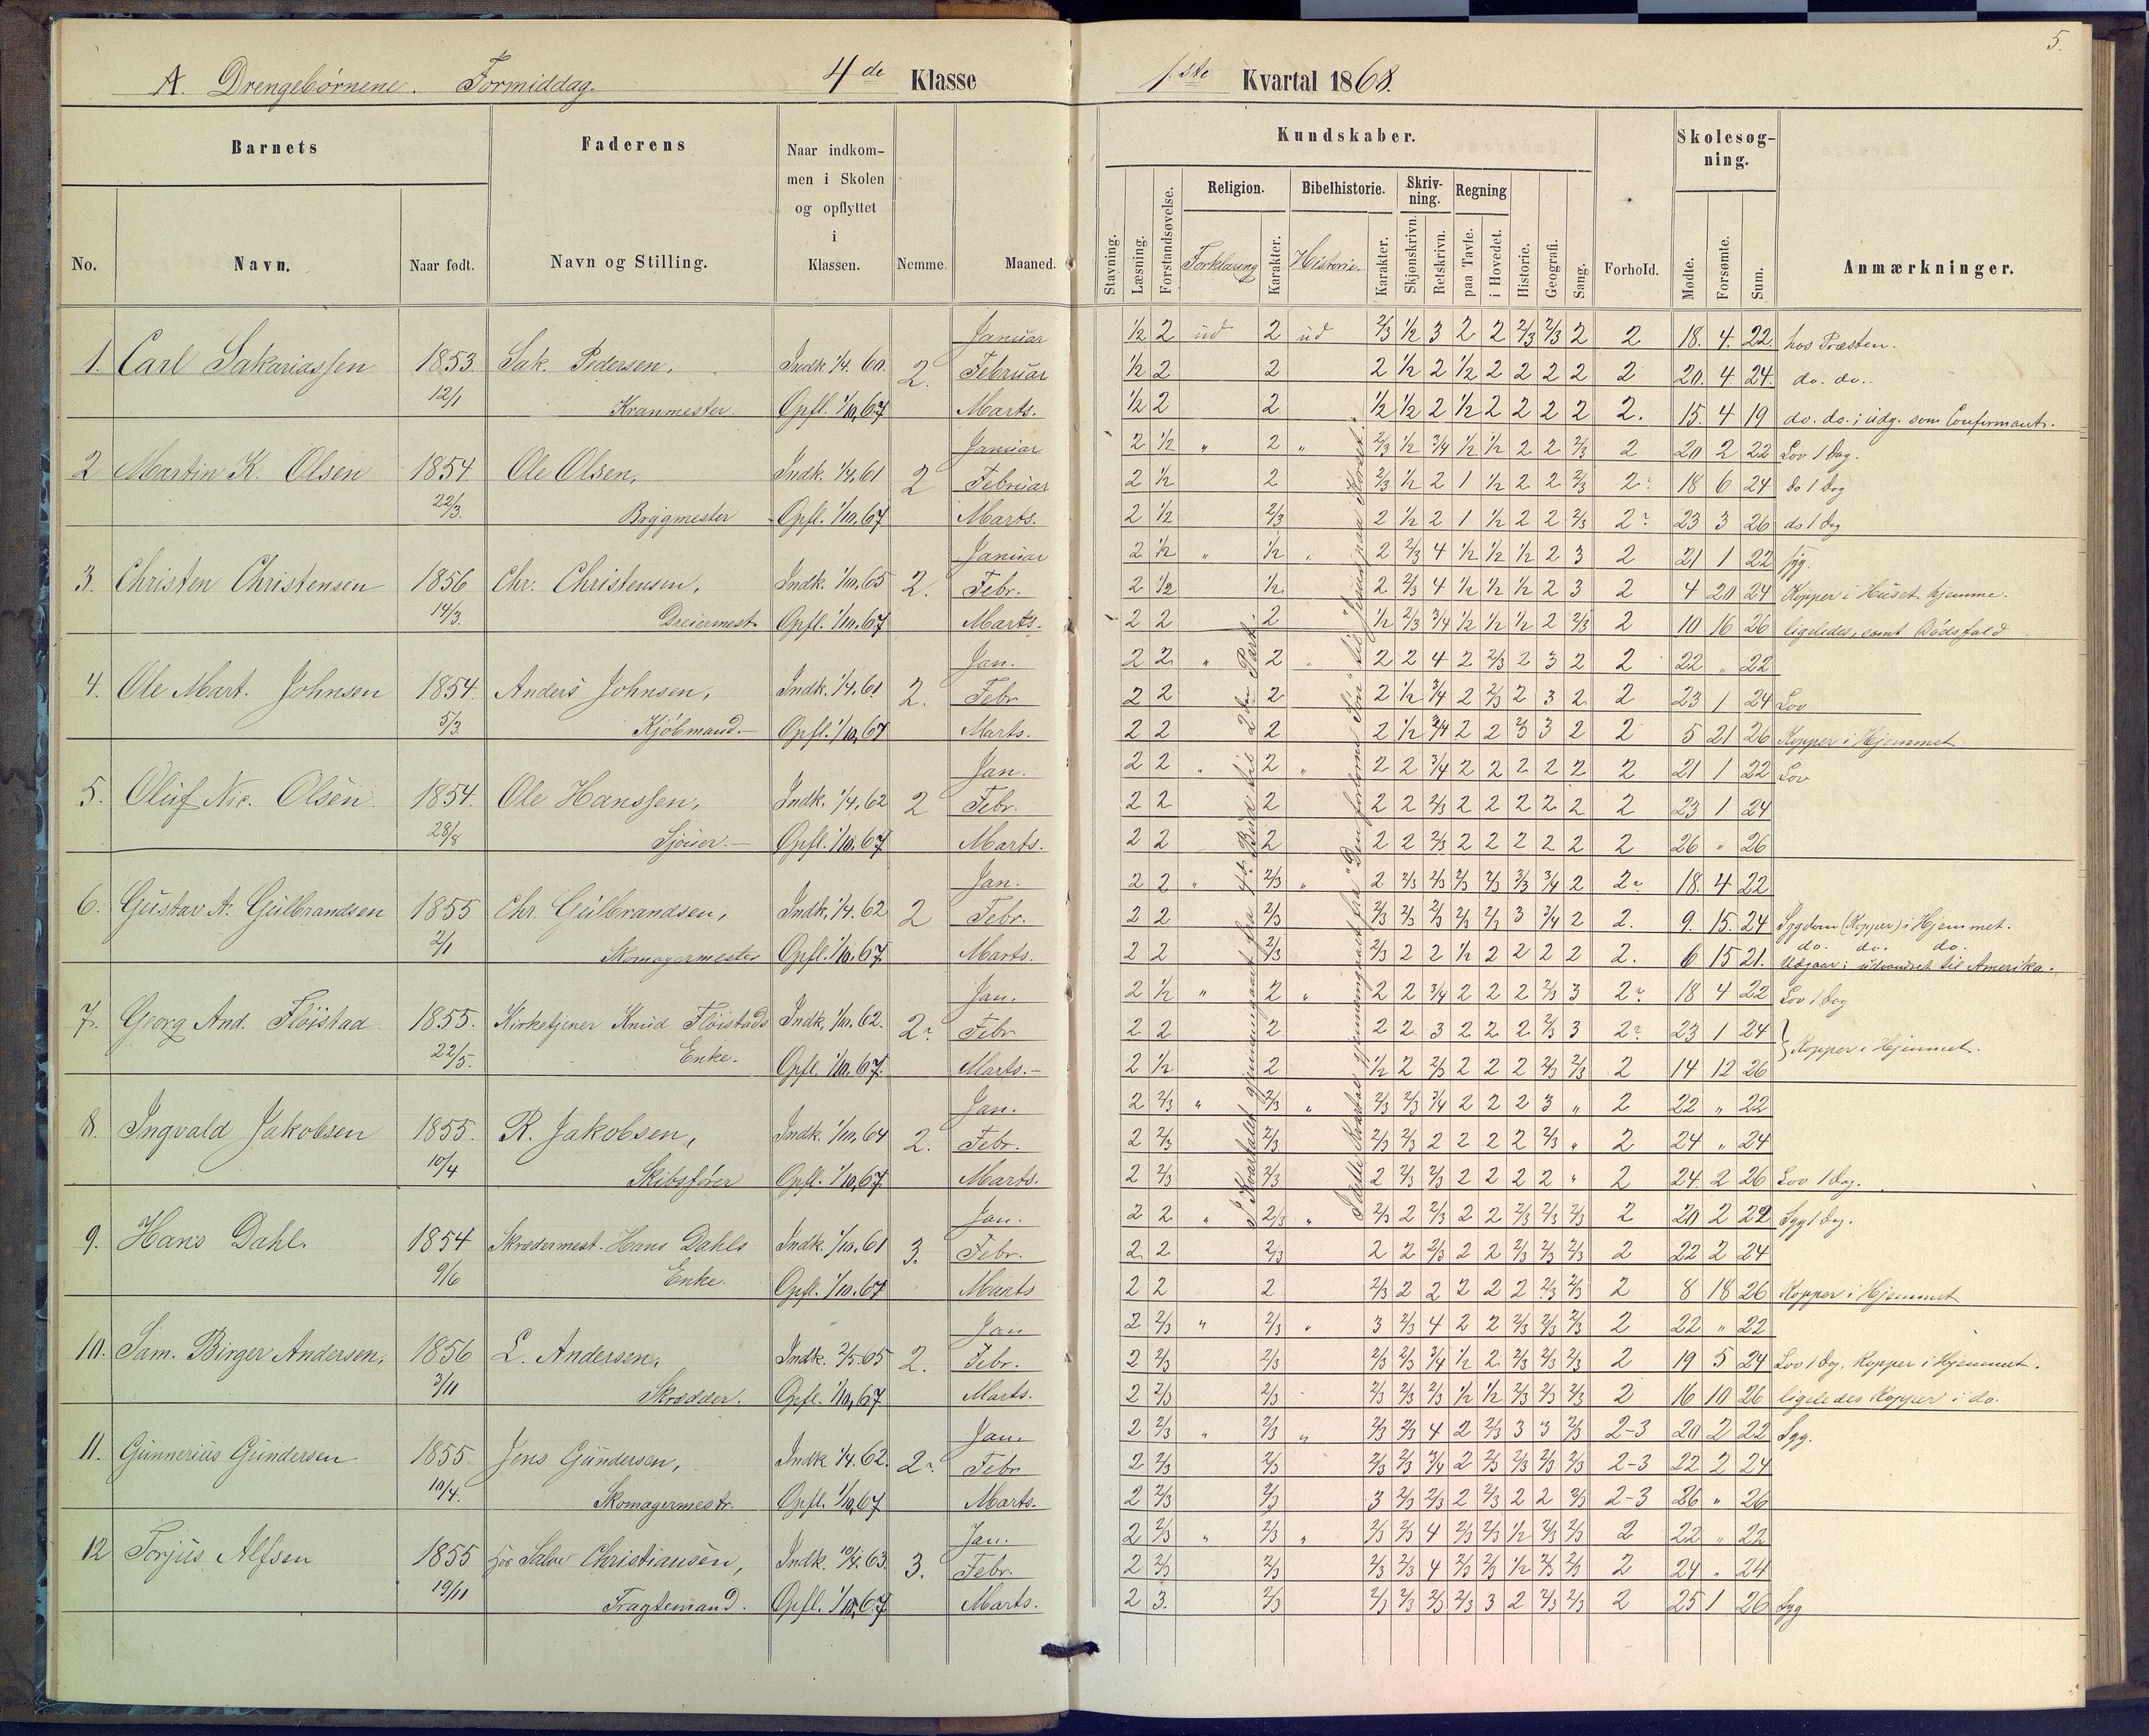 5.
A. Drengebørnene. Formiddag. 4de Klasse 1ste Kvartal 1868.
Barnets Faderens Naar indkommen i Skolen og opflyttet i Klassen. Nemme. Maaned. Kundskaber. Forhold. Skolesøgning. Anmærkninger.
No. Navn. Naar født. Navn og Stilling.
Stavning. Læsning. Forstandsøvelse. Religion. Forklaring Karakter. Bibelhistorie. Historie. Karakter. Skrivning. Skjønskrivn. Retskrivn. Regning paa Tavle. i Hovedet. Historie. Geografi. Sang. Mødte. Forsømte. Sum.
Januar 1/2 2 ud 2 ud 2/3 1/2 3 2 2 2/3 2/3 2 2 18. 4. 22. hos Præsten.
1. Carl Sakariassen 1853. Sak. Pedersen, Indk 1/4. 60. 2. Februar 1/2 2 2 2 1/2 2 1/2 2 2 2 2 2 20. 4 24. do. do.
12/1 Kranmester. Opfl. 1/10,67 Marts. 1/2 2 2 1/2 1/2 2 1/2 2 2 2 2 2. 15. 4 19 do. do. i udg. som Confirmant.
Januar 2 1/2 " 2 " 2/3 1/2 3/4 1/2 1/2 2 2 2/3 2 20 2 22 Lov 1 Dag.
2 Martin K. Olsen 1854. Ole Olsen, Indk. 1/4,61 2 Februar 2 1/2 2 2/3 1/2 2 1 1/2 2 2 2/3 2? 18 6 24 do 1 Dag
22/3. Brygmester Opfl. 1/10.67 Marts. 2 1/2 2/3 2 1/2 2 1 1/2 2 2 2/3 2? 23 3 26 do 1 Dag
Januar 2 1/2 " 1/2 " 2 2/3 4 1/2 1/2 1/2 2 3 2 21 1 22 syg.
3. Christen Christensen 1856 Chr. Christensen, Indk. 1/10.65 2. Febr. 2 1/2 1/2 2 2/3 4 1/2 1/2 1/2 2 3 2 4 20 24 Kopper i Huset hjemme.
14/3. Dreiermest. Opfl. 1/10.67 Marts. 2 2 2 1/2 2/3 3/4 1/2 1/2 1/2 2 2/3 2 10 16 26 ligeledes, samt Dødsfald
Jan. 2 2 " 2 " 2 2 4 2 2/3 2 3 2 2 22 " 22
4. Ole Mart. Johnsen 1854. Anders Johnsen, Indk. 1/4.61 2. Febr 2 2 2 2 1/2 3/4 2 2/3 2 3 2 2 23 1 24 Lov
5/3. Kjöbmand. Opfl. 1/10,67 Marts. 2 2 2 2 1/2 3/4 2 2 2/3 3 2 2 5 21 26 Kopper i Hjemmet
Jan. 2 2 " 2 " 2 2 3/4 2 2 2 2 2 2 21 1 22 Lov
5. Oluf Nic. Olsen. 1854. Ole Hanssen, Indk. 1/4.62 2 Febr. 2 2 2 2 2 2/3 2 2 2 2 2 2 23 1 24
28/8 Sjouer. Opfl. 1/10.67 Marts. 2 2 2 2 2 2/3 2 2 2 2 2 2 26 " 26
Jan. 2 2 " 2/3 " 2 2/3 2/3 2/3 2/3 2/3 3/4 2 2? 18. 4 22
6. Gustav A. Gulbrandsen 1855 Chr. Gulbrandsen, Indk. 1/4.62 2 Febr. 2 2 2/3 2/3 2/3 2/3 2/3 2/3 3 3/4 2 2. 9. 15. 24 Sygdom (Kopper) i Hjemmet.
2/1 Skomagermester Opfl. 1/10.67. Marts. 2 2 2/3 2/3 2 2 1/2 2 2 2 2 2. 6 15 21. do. do. do.
Udgaar; udvandret til Amerika.
Jan. 2 1/2 " 2 " 2 2 3/4 2 2 2 2/3 3 2? 18 4 22 Lov 1 Dag
7. Georg And. Flöistad 1855. Kirketjener Knud Flöistads Indk. 1/10.62. 2? Febr 2 2 2 2 2 3 2 2 2 2/3 3 2? 23 1 24
22/5. Enke. Opfl. 1/10.67. Marts. 2 1/2 2 1/2 2 2/3 2 2 2 2/3 2/3 2 14 12 26 } Kopper i Hjemmet.
Jan. 2 2/3 " 2/3 " 2/3 2/3 3/4 2 2 2 3 " 2 22 " 22
8. Ingvald Jakobsen 1855. R. Jakobsen, Indk. 1/10.64 2. Febr. 2 2/3 2/3 2/3 2/3 2 2 2 2 2/3 " 2 24 " 24
10/4 Skibsfører Opfl. 1/10,67 Marts. 2 2/3 2/3 2 2/3 2/3 2 2 2 2 " 2 24. 2 26 Lov 1 Dag.
Jan. 2 2 " 2/3 " 2/3 2 2/3 2 2 2/3 2/3 2/3 2 20 2 22 Syg 1 Dag.
9. Hans Dahl. 1854 Skrædermest. Hans Dahls Indk. 1/10.61 3. Febr. 2 2 2/3 2 2 2/3 2 2 2/3 2/3 2/3 2 22 2 24
9/6 Enke. Opfl. 1/10.67 Marts 2 2 2 2/3 2 2 2 2 2 2/3 2/3 2 8 18 26 Kopper i Hjemmet
Jan 2 2/3 " 2/3 " 3 2/3 4 2 2 2/3 2/3 2/3 2 22 " 22
10. Sam. Birger Andersen, 1856 L. Andersen, Indk. 2/5.65 2. Febr. 2 2/3 2/3 2/3 2/3 3/4 1/2 2 2/3 2/3 2/3 2 19 5 24 Lov 1 Dag. Kopper i Hjemmet.
3/11 Skrædder. Opfl. 1/10,67 Marts. 2 2/3 2/3 2/3 2/3 2/3 1/2 1/2 2/3 2/3 2/3 2 16 10 26 ligeledes Kopper i do.
Jan. 2 2/3 " 2/3 " 2/3 2/3 4 2 2/3 3 3 2/3 2-3 20 2 22 Syg.
11. Gunnerius Gundersen 1855 Jens Gundersen, Indk 1/4.62. 2? Febr 2 2/3 2/3 2/3 2/3 3/4 2 2/3 2/3 2/3 2/3 2-3 22 2 24
10/4. Skomagermestr. Opfl. 1/10,67 Marts. 2 2/3 2/3 3 2/3 2/3 2 2/3 2 2 2/3 2-3 26 " 26
Jan. 2 2/3 " 2/3 " 2/3 2/3 4 2/3 2/3 1/2 2/3 2/3 2 22 " 22
12 Torjus Alfsen 1855 hos Salve Christiansen, Indk. 10/4.63. 3. Febr. 2 2/3 2/3 2/3 2/3 4 2/3 2/3 1/2 2/3 2/3 2 24 " 24
19/11 Fragtemand. Opfl. 1/10,67. Marts. 2 3. 2/3 2/3 2/3 2/3 2/3 3 2 2/3 2/3 2 25 1 26 Syg
I Kvartalet gjennemgaaet fra 4de Bud til 2den Part.
gjennemgaaet fra "Den forlorne Søn" til Jesus paa Korset.